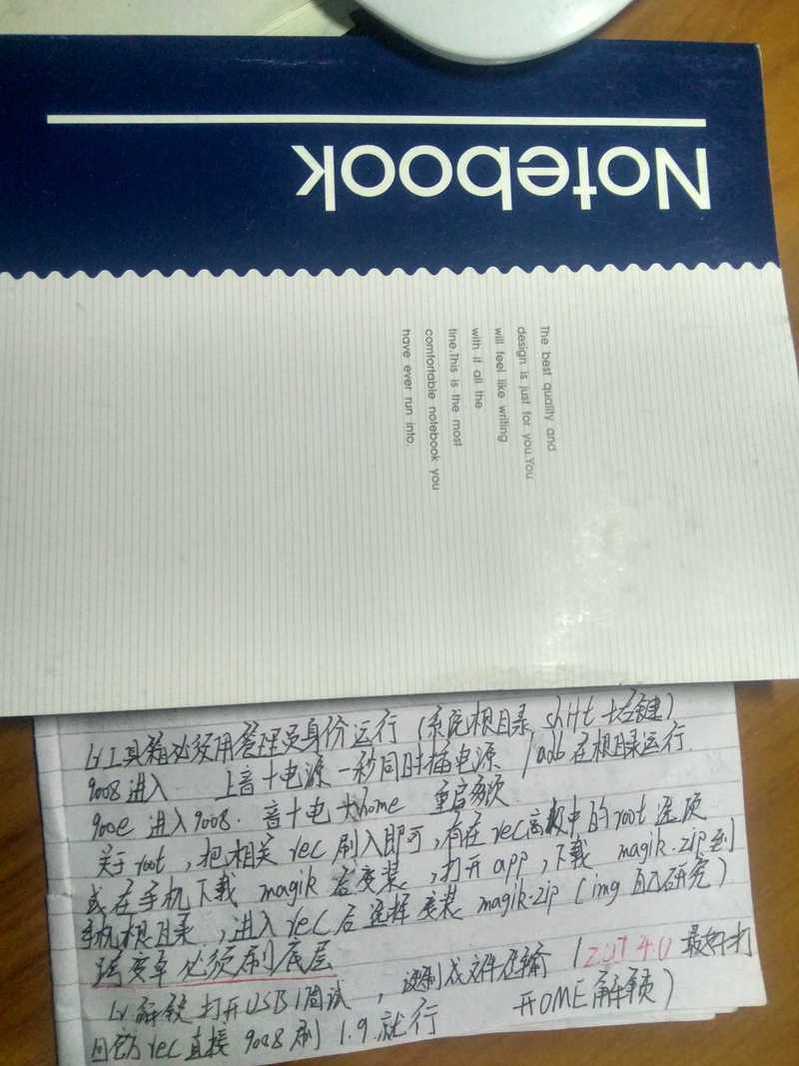 Notebook
The best quality and
design is just for you.You
will feel like writing
with it all the
time.This is the most
comfortable notebook you
have ever run into.
工具箱必须用管理员身份运行（系统根目录，shift+右键）
9008进入 上音+电源一秒同时插电源 /adb在根目录运行
900e进入9008. 音+电+home 重启多次
关于root，把相关rec刷入即可，有在rec高级中的root选项
或在手机下载magik后安装，打开app，下载magik.zip到
手机根目录，进入rec后选择安装magik.zip（img 研究）
跨安卓必须刷底层
解锁打开USB调试，文件传输（ZUI 4.0最好打
rec直接9008刷1.9.就行 开OME解锁）